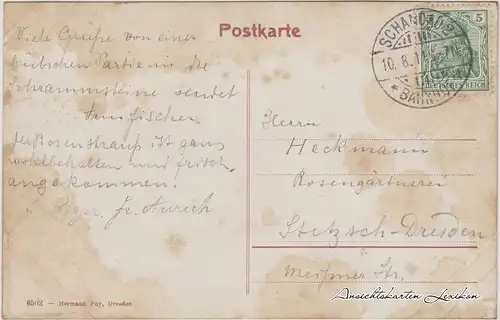 Postkarte
SCHANDAU
10. 8. 1
* BAHNHOF
5
DEUTSCHES REICH
Viele Grüße von einer
hübschen Partie in die
Schrammsteine sendet
der Rosenstrauß ist ganz
wohlbehalten und frisch
angekommen.
Herrn
Heckmann
Rosengärtnerei
Stetzsch-Dresden
Meißner Str.
6592 — Hermann Poy, Dresden
Ansichtskarten Lexikon